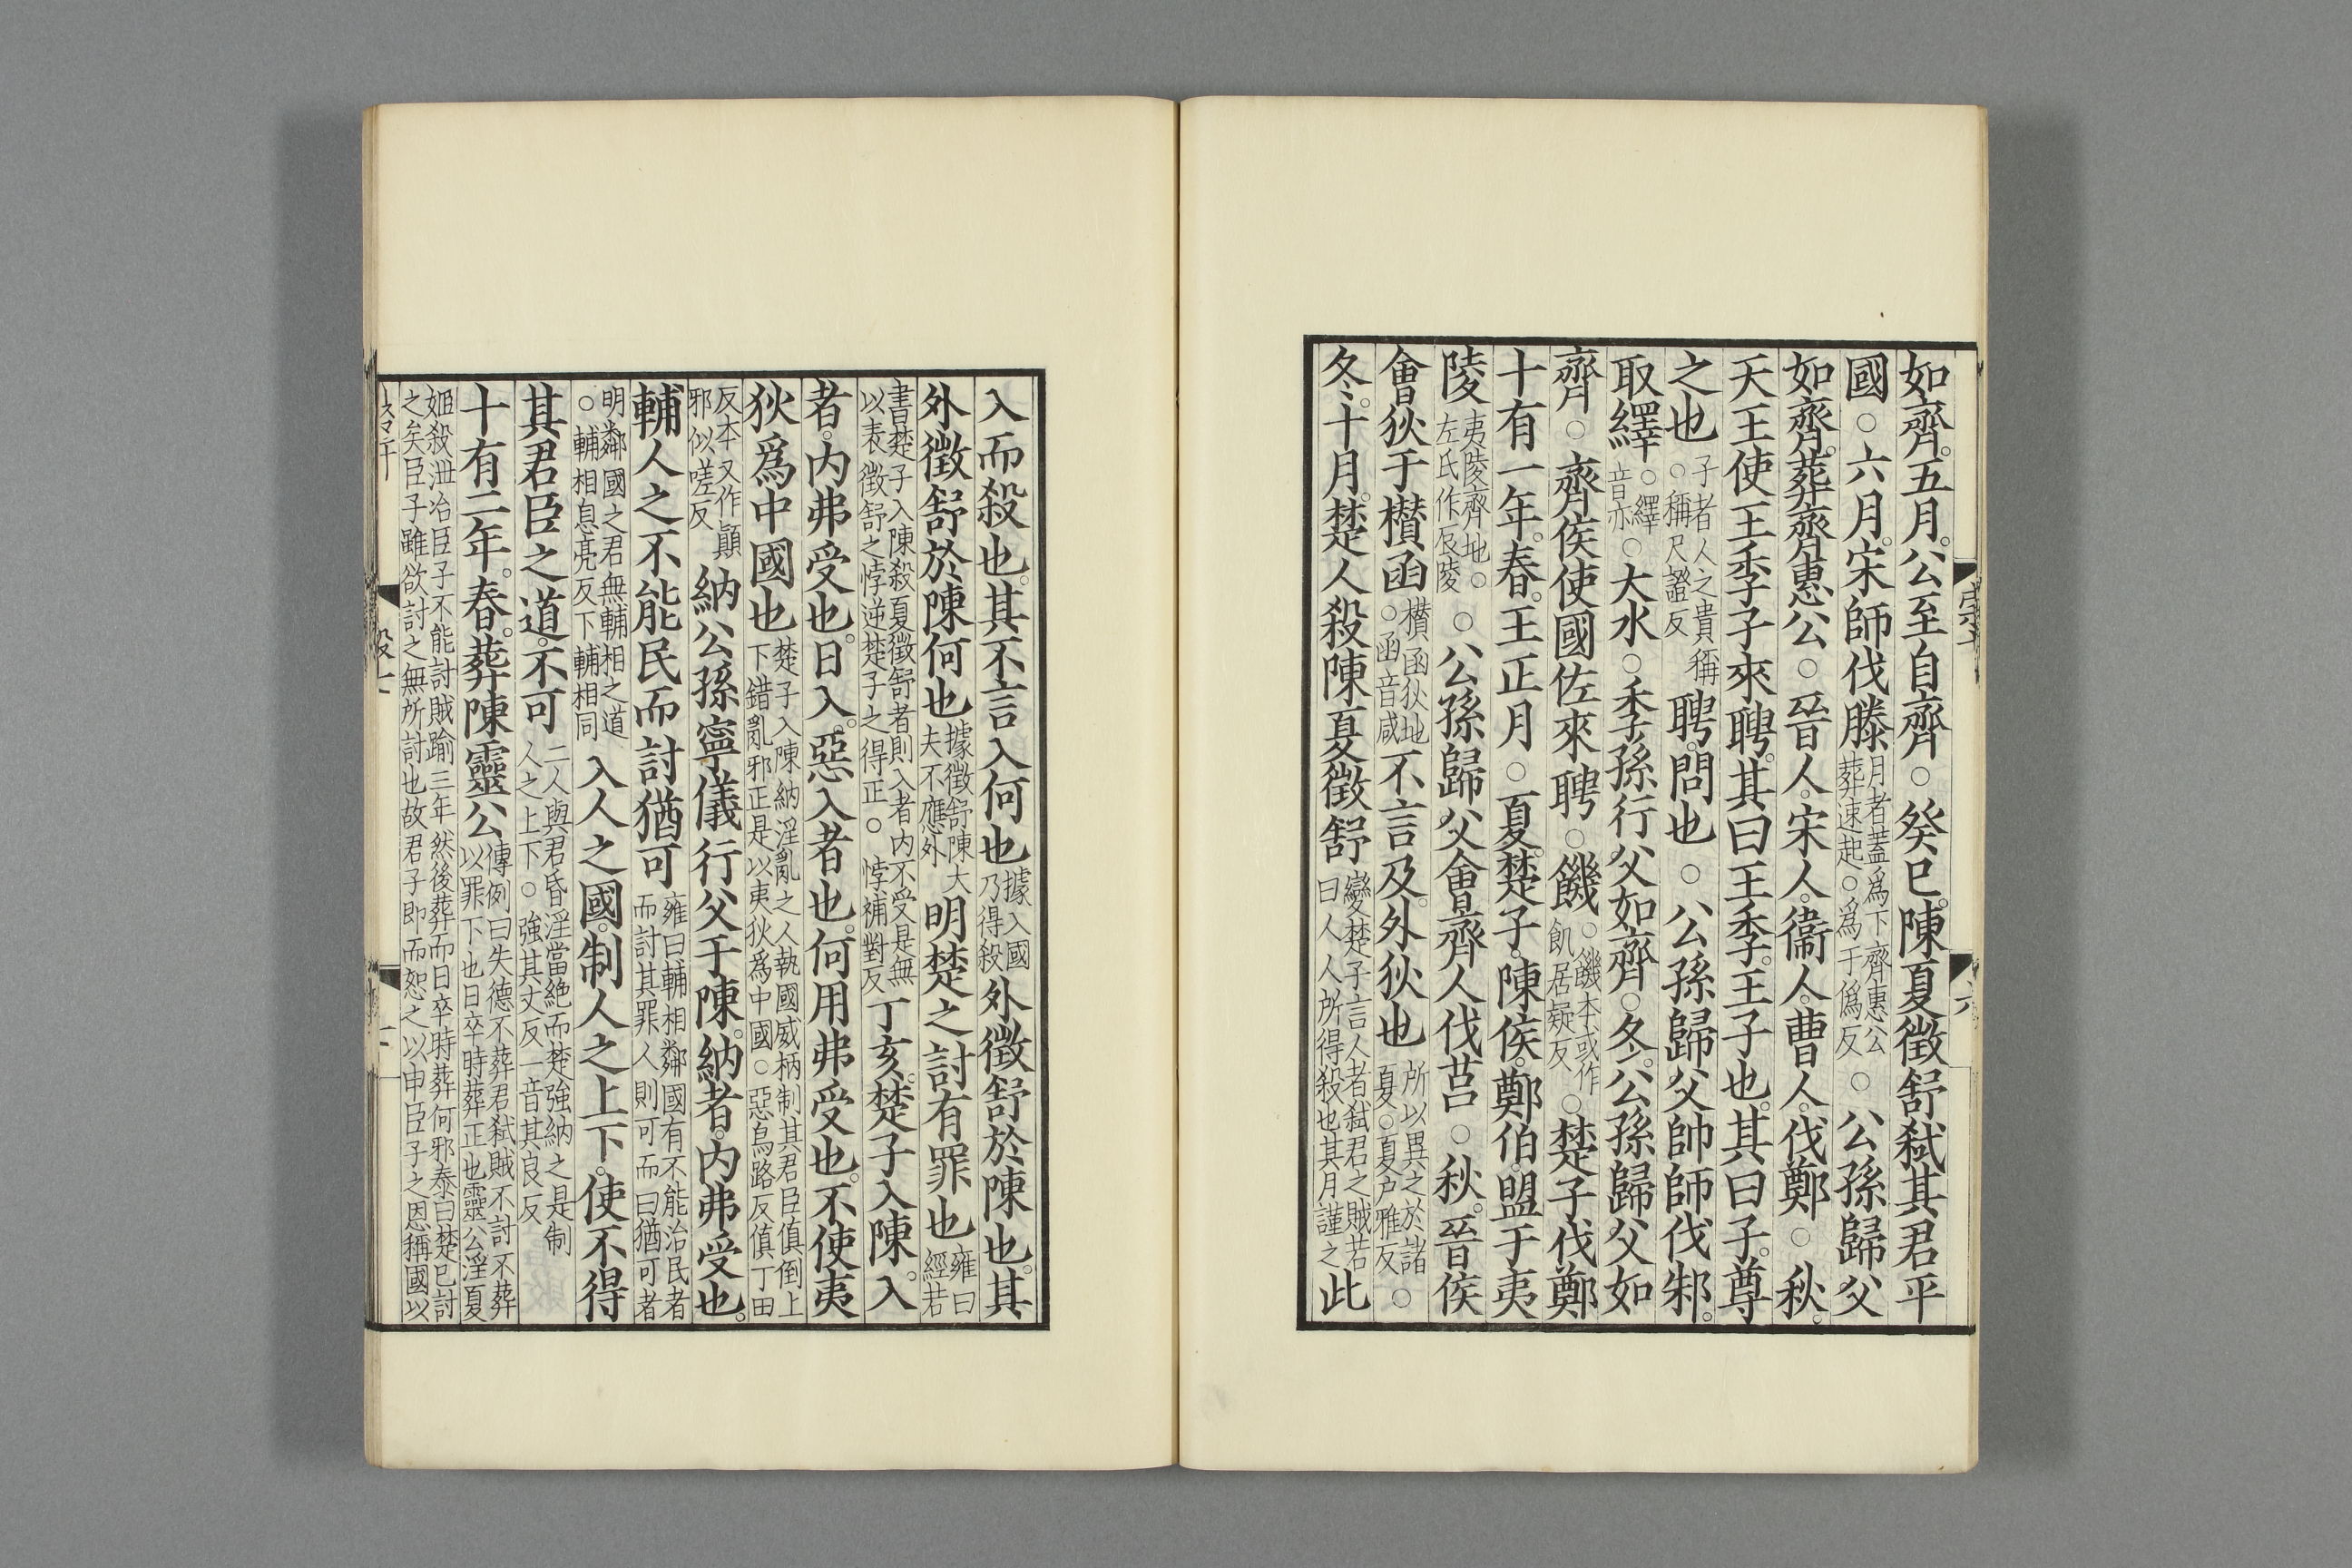 如齊。五月。公至自齊○癸巳。陳夏徵舒弑其君平
國○六月。宋師伐滕月者蓋爲下齊惠公葬速起○爲于僞反○公孫歸父
如齊。葬齊惠公○晉人。宋人。衞人。曹人。伐鄭○秋。
天王使王季子來聘。其曰王季。王子也。其曰子。尊
之也子者人之貴稱○稱尺證反聘。問也○公孫歸父帥師伐邾。
取繹○繹音亦○大水○季孫行父如齊○冬。公孫歸父如
齊○齊侯使國佐來聘○饑○饑本或作飢居疑反○楚子伐鄭
十有一年。春。王正月○夏。楚子。陳侯。鄭伯。盟于夷
陵夷陵齊地○左氏作辰陵○公孫歸父會齊人伐莒○秋。晉侯
會狄于欑函欑函狄地○函音咸不言及。外狄也所以異之於諸夏○夏户雅反○
冬。十月。楚人殺陳夏徵舒變楚子言人者弑君之賊若曰人人所得殺也其月謹之此
入而殺也。其不言入何也據入國乃得殺外徵舒於陳也。其
外徵舒於陳何也據徵舒陳大夫不應外明楚之討有罪也雍曰經若
書楚子入陳殺夏徵舒者則入者内不受是無以表徵舒之悖逆楚子之得正○悖補對反丁亥。楚子入陳。入
者。内弗受也。日入。惡入者也。何用弗受也。不使夷
狄爲中國也楚子入陳納淫亂之人執國威柄制其君臣傎倒上下錯亂邪正是以夷狄爲中國○惡烏路反傎丁田
反本又作顚邪似嗟反納公孫寧儀行父于陳。納者。内弗受也。
輔人之不能民而討猶可雍曰輔相鄰國有不能治民者而討其罪人則可而曰猶可者
明鄰國之君無輔相之道○輔相息亮反下輔相同入人之國。制人之上下。使不得
其君臣之道。不可二人與君昏淫當絶而楚強納之是制人之上下○強其丈反一音其良反
十有二年。春。葬陳靈公傳例曰失德不葬君弑賊不討不葬以罪下也日卒時葬正也靈公淫夏
姬殺泄冶臣子不能討賊踰三年然後葬而日卒時葬何邪泰曰楚已討之矣臣子雖欲討之無所討也故君子即而恕之以申臣子之恩稱國以